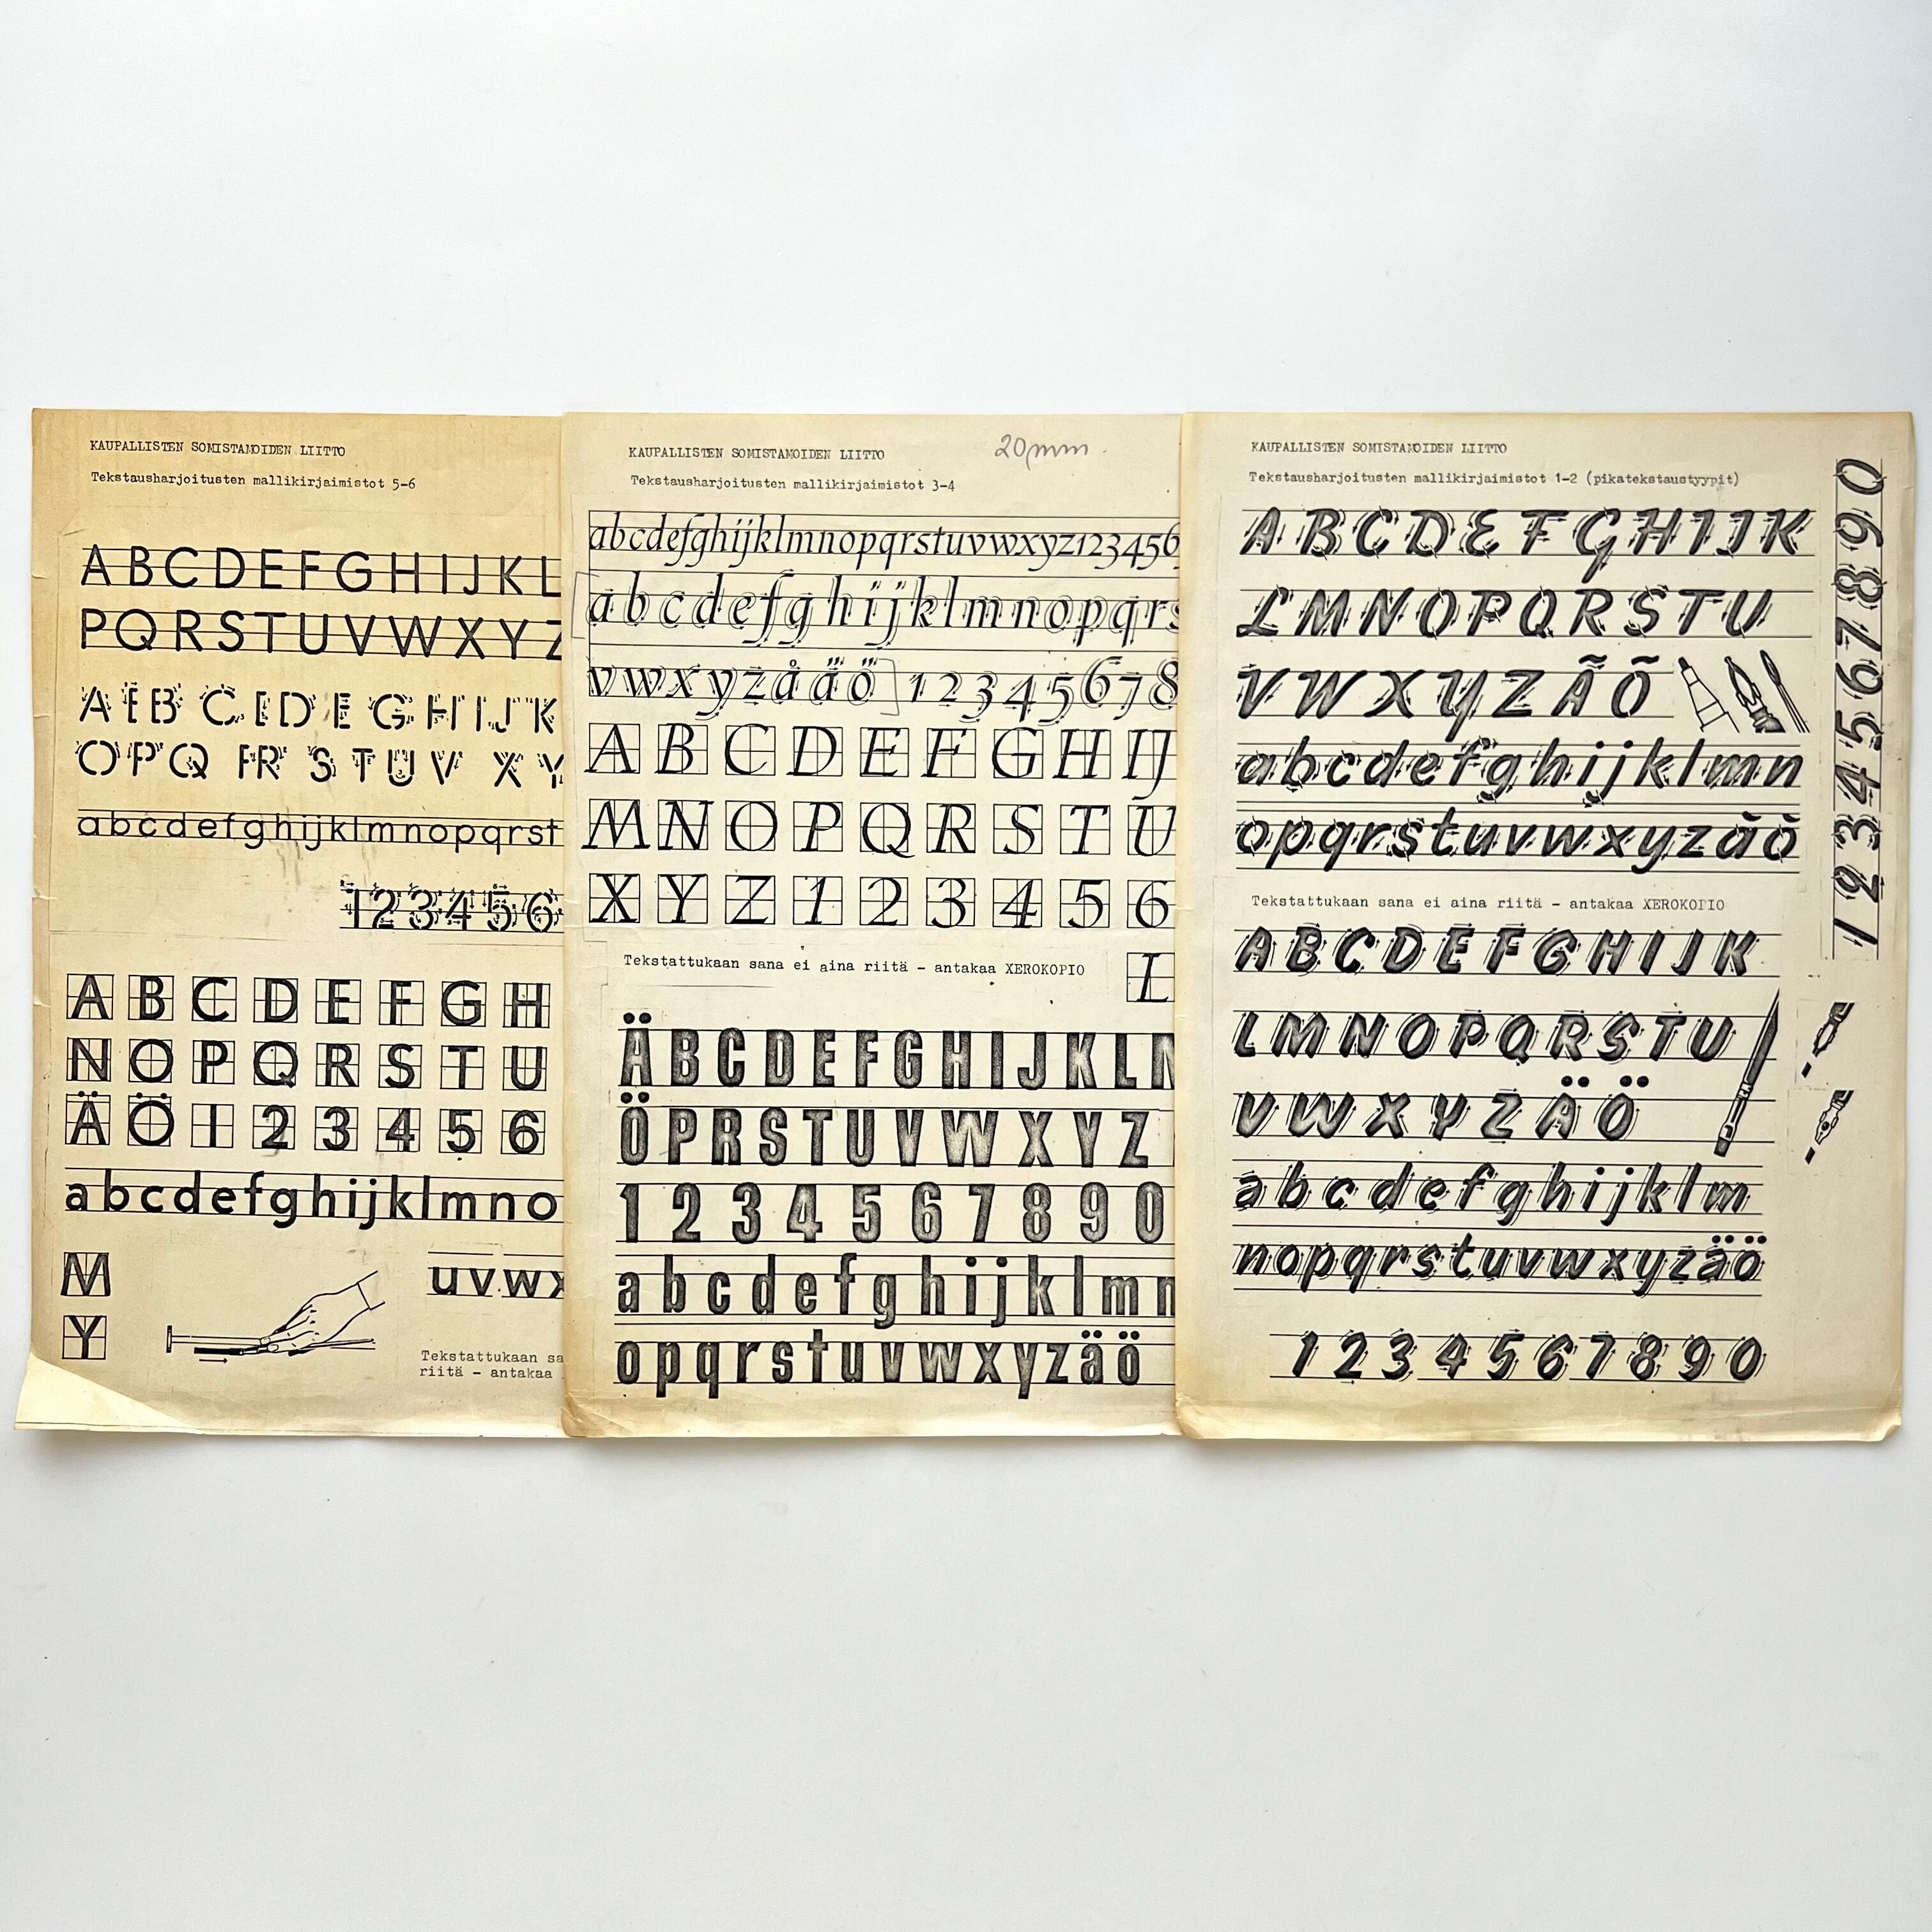 KAUPALLISTEN SOMISTAMOIDEN LIITTO
Tekstausharjoitusten mallikirjaimistot 5-6
ABCDEFGHIJKL
PQRSTUVWXYZ
A E B C L D E G H I J K
O P Q I R S T U V X Y
abcdefghijklmnopqrst
123456
A B C D E F G H
N O P Q R S T U
Ä Ö 1 2 3 4 5 6
abcdefghijklmno
M
uvwx
Y
Tekstattukaan sa
riitä - antakaa
KAUPALLISTEN SOMISTAMOIDEN LIITTO
20mm.
Tekstausharjoitusten mallikirjaimistot 3-4
abcdefghijklmnopqrstuvwxyz123456
abcdefghijklmnopqrs
vwxyzåäö 12345678
A B C D E F G H IJ
M N O P Q R S T U
X Y Z 1 2 3 4 5 6
Tekstattukaan sana ei aina riitä - antakaa XEROKOPIO
L
ÄBCDEFGHIJKLM
ÖPRSTUVWXYZ
1234567890
abcdefghijklmn
opqrstuvwxyzäö
KAUPALLISTEN SOMISTAMOIDEN LIITTO
Tekstausharjoitusten mallikirjaimistot 1-2 (pikatekstaustyypit)
ABCDEFGHIJK
LMNOPQRSTU
VWXYZÄÖ
abcdefghijklmn
opqrstuvwxyzäö
1234567890
Tekstattukaan sana ei aina riitä - antakaa XEROKOPIO
ABCDEFGHIJK
LMNOPQRSTU
VWXYZÄÖ
abcdefghijklm
nopqrstuvwxyzäö
1234567890